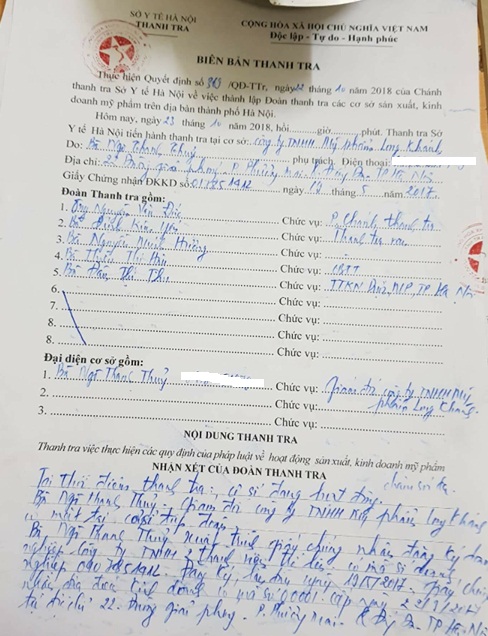 SỞ Y TẾ HÀ NỘI
THANH TRA
CỘNG HÒA XÃ HỘI CHỦ NGHĨA VIỆT NAM
Độc lập - Tự do - Hạnh phúc
BIÊN BẢN THANH TRA
Thực hiện Quyết định số 363 /QĐ-TTr, ngày 22 tháng 10 năm 2018 của Chánh
thanh tra Sở Y tế Hà Nội về việc thành lập Đoàn thanh tra các cơ sở sản xuất, kinh
doanh mỹ phẩm trên địa bàn thành phố Hà Nội.
Hôm nay, ngày 23 tháng 10 năm 2018, hồi......giờ......phút. Thanh tra Sở
Y tế Hà Nội tiến hành thanh tra tại cơ sở: công ty TNHH Mỹ phẩm Long Khang
Do: Bà Ngô Thanh Thủy phụ trách. Điện thoại:
Địa chỉ: 22 Đường giải phóng - P. Phương mai - Q. Đống Đa - TP Hà Nội
Giấy Chứng nhận ĐKKD số: ngày 19 tháng 5 năm 2017.
Đoàn Thanh tra gồm:
1. Ông Nguyễn Văn Chức vụ: P. Chánh thanh tra
2. Bà Đinh Chức vụ: Thanh tra
3. Bà Nguyễn Hường Chức vụ:
4. Bà Thị Chức vụ:
5. Bà Thị Thu Chức vụ: TTKN TP Hà Nội
6. Chức vụ:
7. Chức vụ:
8. Chức vụ:
8. Chức vụ:
Đại diện cơ sở gồm:
1. Bà Ngô Thanh Thủy Chức vụ: Giám đốc công ty TNHH Mỹ
phẩm Long Khang
2. Chức vụ:
3. Chức vụ:
NỘI DUNG THANH TRA
Thanh tra việc thực hiện các quy định của pháp luật về hoạt động sản xuất, kinh doanh mỹ phẩm
NHẬN XÉT CỦA ĐOÀN THANH TRA
Tại thời điểm thanh tra: cơ sở đang hoạt động.
Bà Ngô Thanh Thủy - Giám đốc công ty TNHH Mỹ phẩm Long Khang
có mặt tại cơ sở tiếp đoàn.
Bà Ngô Thanh Thủy xuất trình giấy chứng nhận đăng ký doanh
nghiệp công ty TNHH 2 thành viên trở lên có mã số doanh
nghiệp Đăng ký lần đầu ngày 19/5/2017. Giấy chứng
nhận địa điểm kinh doanh có mã số 00001 cấp ngày
tại địa chỉ 22 Đường giải phóng - P. Phương mai - Q. Đống Đa - TP Hà Nội